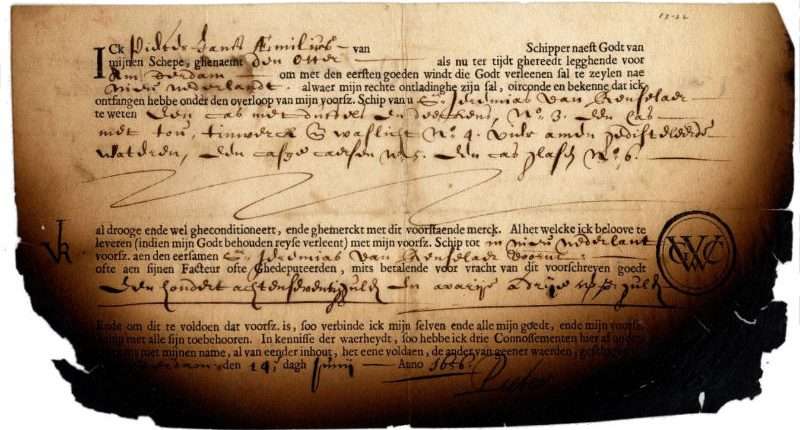 12-22
ICk Pieter Janss Æmilius van Schipper naest Godt van
mijnen Schepe, ghenaemt den Otter als nu ter tijdt ghereedt legghende voor
Amsterdam om met den eersten goeden windt die Godt verleenen sal te zeylen nae
Nieu nederlandt. alwaer mijn rechte ontladinghe zijn sal, oirconde en bekenne dat ick
ontfangen hebbe onder den overloop van mijn voorsz. Schip van u S. Jeremias van Renselaer
te weten Een cas met en No. 3. Een cas
met tou, tinwerck & waslicht No. 4.
wateren, Een caers No. 5. Een cas No. 6.
al drooge ende wel gheconditioneert, ende ghemerckt met dit voorstaende merck. Al het welcke ick beloove te
leveren (indien mijn Godt behouden reyse verleent) met mijn voorsz. Schip tot in nieu nederlant
voorsz. aen den eersamen S. Jeremias van Renselaer voorn.
ofte aen sijnen Facteur ofte Ghedeputeerden, mits betalende voor vracht van dit voorschreven goedt
Een hondert achtenseventig guld. en avarije
Ende om dit te voldoen dat voorsz. is, soo verbinde ick mijn selven ende alle mijn goedt, ende mijn voorsz.
met alle sijn toebehooren. In kennisse der waerheydt, soo hebbe ick drie Connossementen hier af
met mijnen name, al van eender inhout, het eene voldaen, de ander van geener waerden,
den 14. dagh Junij Anno 1656.
VWCC